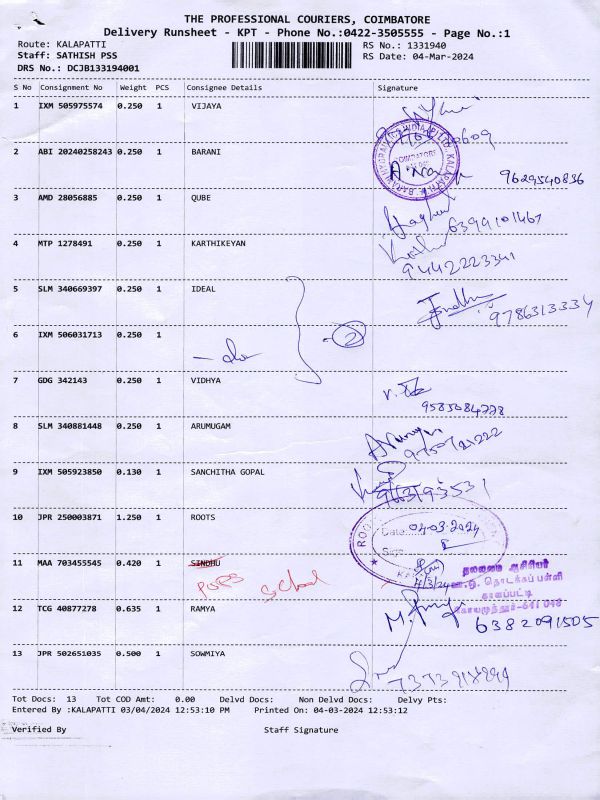 THE PROFESSIONAL COURIERS, COIMBATORE
Delivery Runsheet - KPT - Phone No.:0422-3505555 - Page No.:1
Route: KALAPATTI
RS No.: 1331940
Staff: SATHISH PSS
RS Date: 04-Mar-2024
DRS No.: DCJB133194001
S No Consignment No Weight PCS Consignee Details Signature
1 IXM 505975574 0.250 1 VIJAYA
2 ABI 20240258243 0.250 1 BARANI
COIMBATORE
9629540836
3 AMD 28056885 0.250 1 QUBE
6399101467
4 MTP 1278491 0.250 1 KARTHIKEYAN
9442223341
5 SLM 340669397 0.250 1 IDEAL
9786313334
6 IXM 506031713 0.250 1
2
7 GDG 342143 0.250 1 VIDHYA
8 SLM 340881448 0.250 1 ARUMUGAM
9 IXM 505923850 0.130 1 SANCHITHA GOPAL
10 JPR 250003871 1.250 1 ROOTS
ROOTS
Date 04.03.2024
Sign
11 MAA 703455545 0.420 1 SINDHU
School
4/3/24
தலைமை ஆசிரியர்
தொடக்கப் பள்ளி
காளப்பட்டி
கோயமுத்தூர்-641 048
12 TCG 40877278 0.635 1 RAMYA
6382091505
13 JPR 502651035 0.500 1 SOWMIYA
Tot Docs: 13 Tot COD Amt: 0.00 Delvd Docs: Non Delvd Docs: Delvy Pts:
Entered By :KALAPATTI 03/04/2024 12:53:10 PM Printed On: 04-03-2024 12:53:12
Verified By Staff Signature